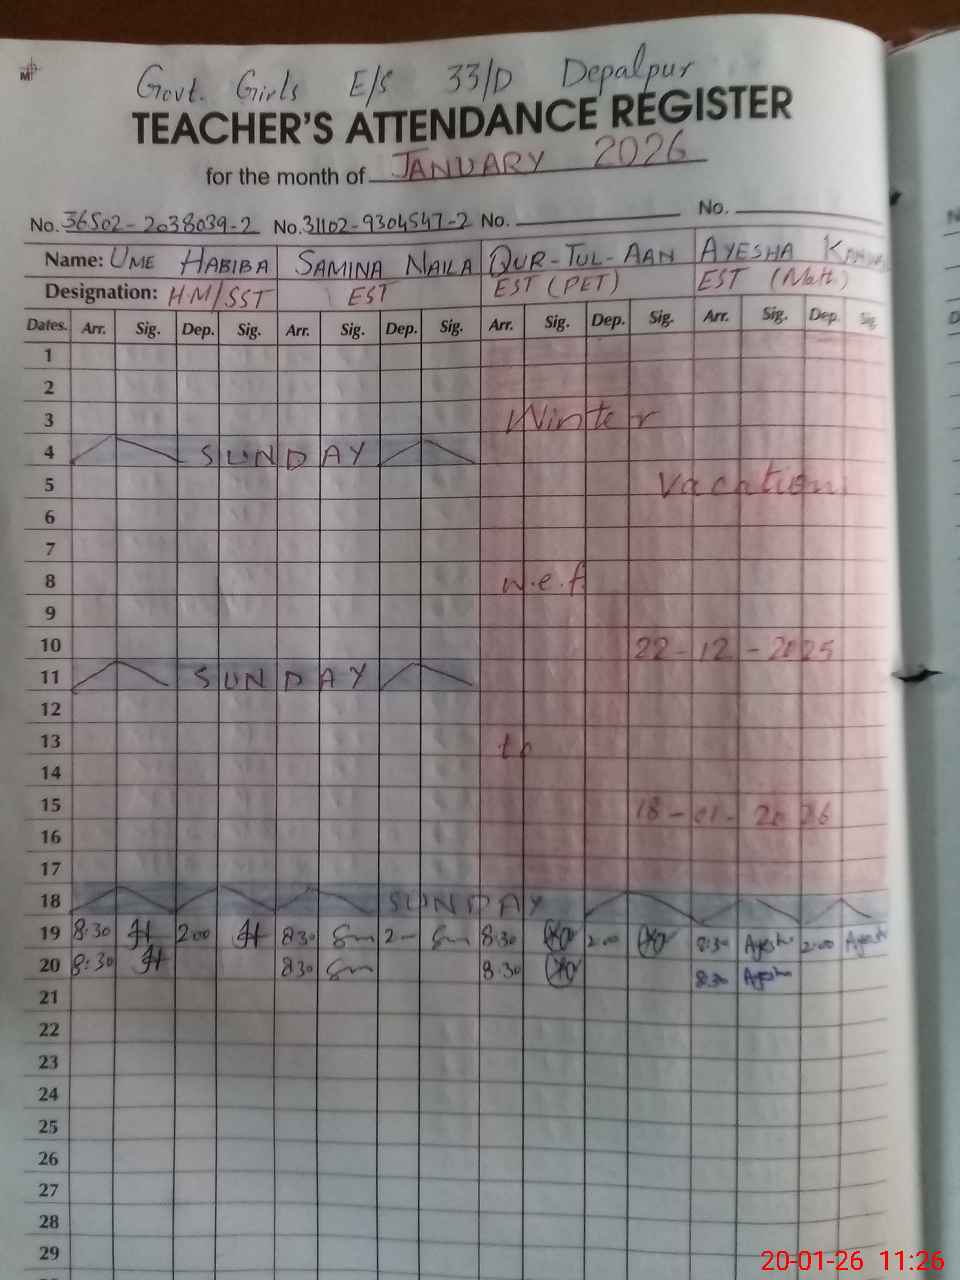 Govt. Girls E/S 33/D Depalpur
TEACHER'S ATTENDANCE REGISTER
for the month of JANUARY 2026
No. 36502-2038039-2 No. 31102-9304547-2 No. No.
Name: UME HABIBA SAMINA NAILA QUR-TUL-AAN AYESHA
Designation: H.M/SST EST EST (PET) EST (Math)
Dates. Arr. Sig. Dep. Sig. Arr. Sig. Dep. Sig. Arr. Sig. Dep. Sig. Arr. Sig. Dep. Sig.
1
2
3 Winter
4 SUNDAY
5 Vacation
6
7
8 w.e.f
9
10 22-12-2025
11 SUNDAY
12
13 to
14
15 18-01-2026
16
17
18 SUNDAY
19 8:30 2:00 8:30 2- 8:30 2:00 8:30 Ayesha 2:00 Ayesha
20 8:30 8:30 8:30 8:30 Ayesha
21
22
23
24
25
26
27
28
29
20-01-26 11:26